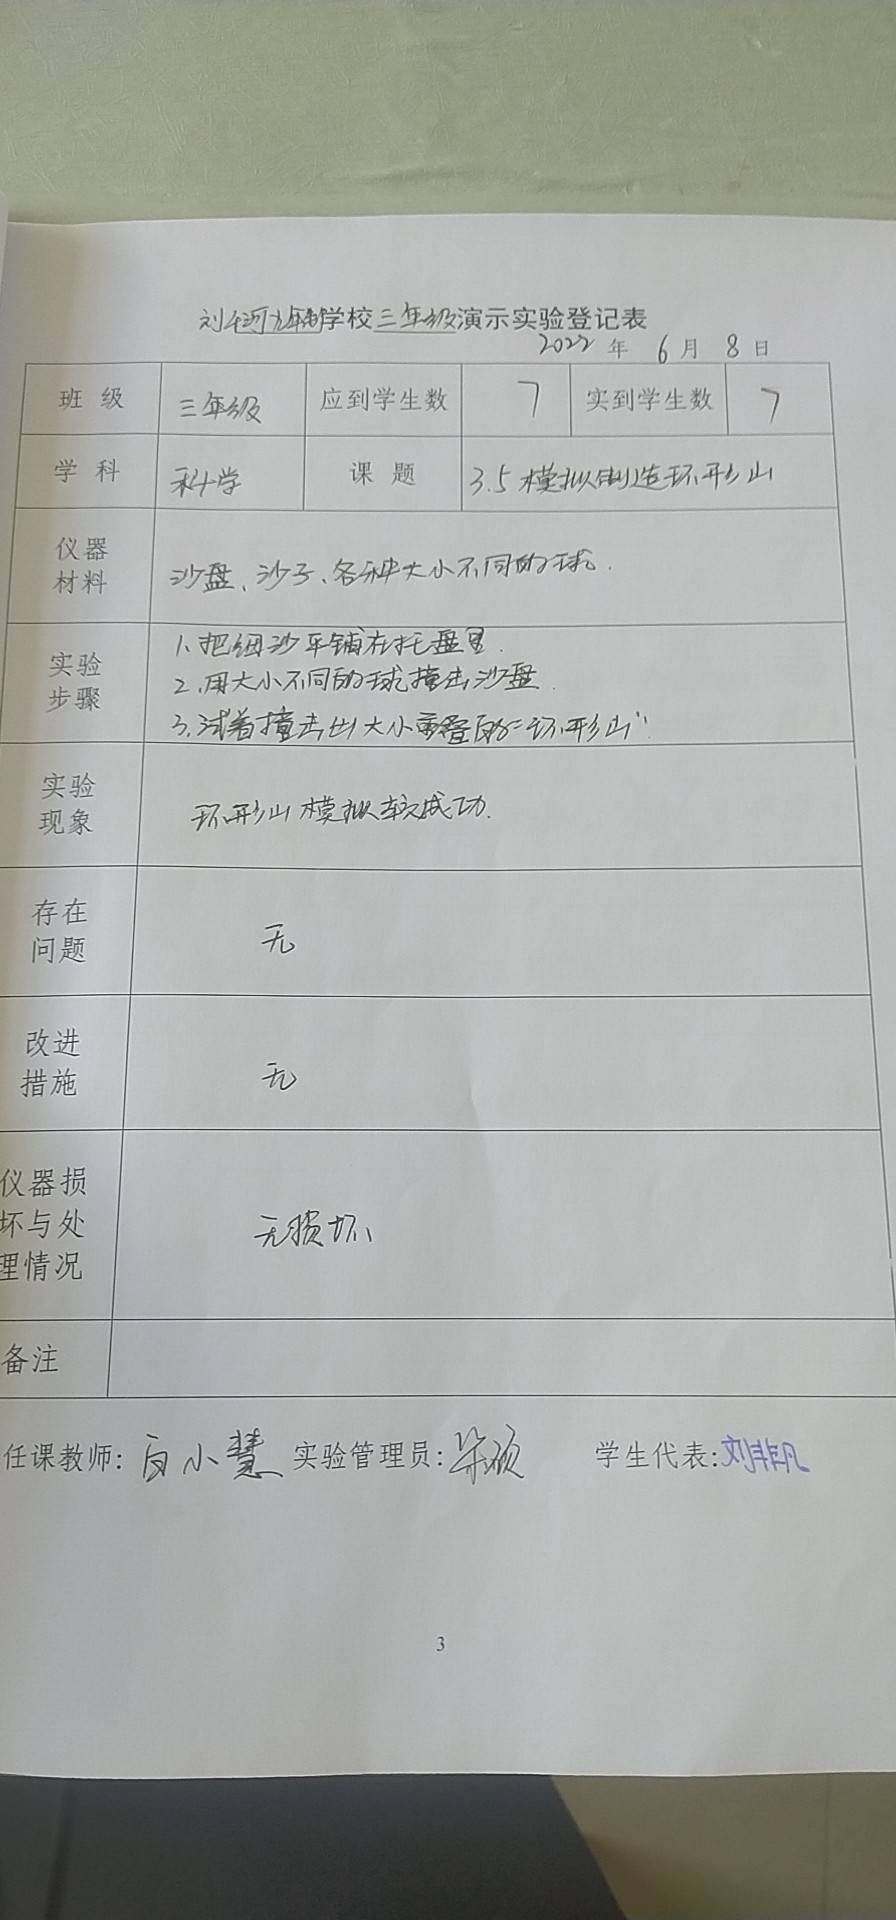 刘家河九年制学校三年级演示实验登记表
2022 年 6 月 8 日
班 级 三年级 应到学生数 7 实到学生数 7
学 科 科学 课 题 3.5 模拟制造环形山
仪器
材料
沙盘、沙子、各种大小不同的球.
实验
步骤
1.把细沙平铺在托盘里.
2.用大小不同的球撞击沙盘.
3.试着撞击出大小重叠的“环形山”.
实验
现象
环形山模拟较成功.
存在
问题
无
改进
措施
无
仪器损
坏与处
理情况
无损坏
备注
任课教师: 白小慧 实验管理员: 学生代表:刘非凡
3